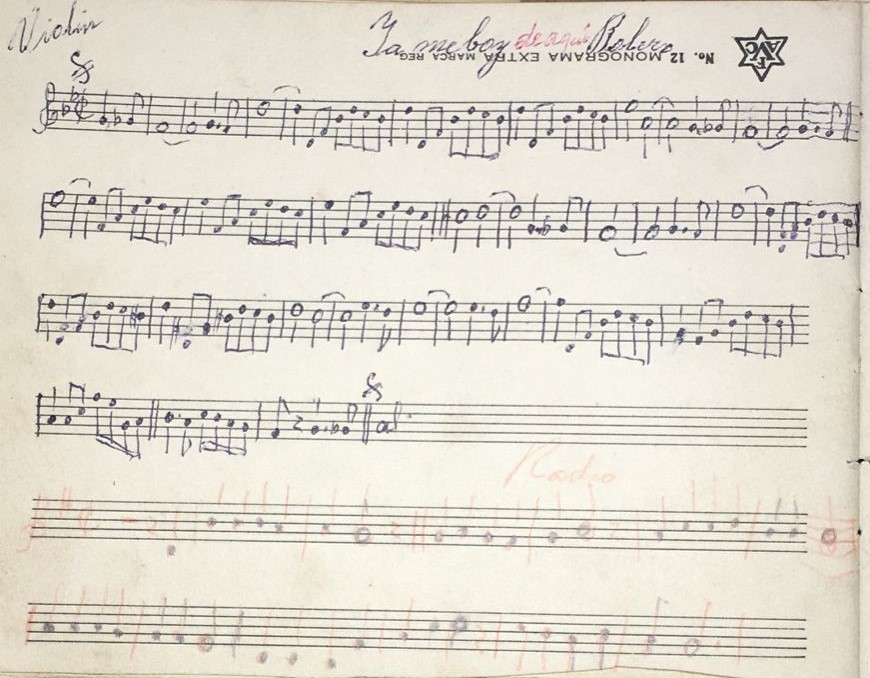 Violin
Ya me boy de aquí Bolero
No. 12 MONOGRAMA EXTRA MARCA REG
F
AVC
al
Radio